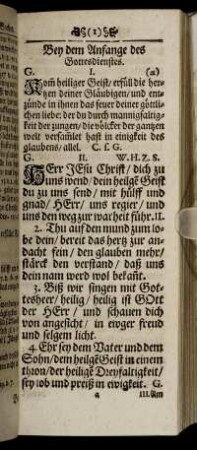 (1)
Bey dem Anfange des
Gottesdienstes.
G. I. (a)
Kom̃ heiliger Geist/ erfüll die her-
tzen deiner Gläubigen/ und ent-
zünde in ihnen das feuer deiner göttli-
chen liebe: der du durch mannigfaltig-
keit der zungen/ die völcker der gantzen
welt versam̃let hast in einigkeit des
glaubens/ allel. C. s. G.
G. II. W. H. Z. S.
HErr JEsu Christ/ dich zu
uns wend/ dein heilgẽ Geist
du zu uns send/ mit hülff und
gnad/ HErr/ uns regier/ und
uns den weg zur warheit führ. II.
2. Thu auf den mund zum lo-
be dein/ bereit das hertz zur an-
dacht fein/ den glauben mehr/
stärck den verstand/ daß uns
dein nam werd wol bekañt.
3. Biß wir singen mit Got-
tesheer/ heilig/ heilig ist GOtt
der HErr/ und schauen dich
von angesicht/ in ewger freud
und selgem licht.
4. Ehr sey dem Vater und dem
Sohn/ dem heilgẽ Geist in einem
thron/ der heilige Dreyfaltigkeit/
sey lob und preiß in ewigkeit. G.
a III. Am